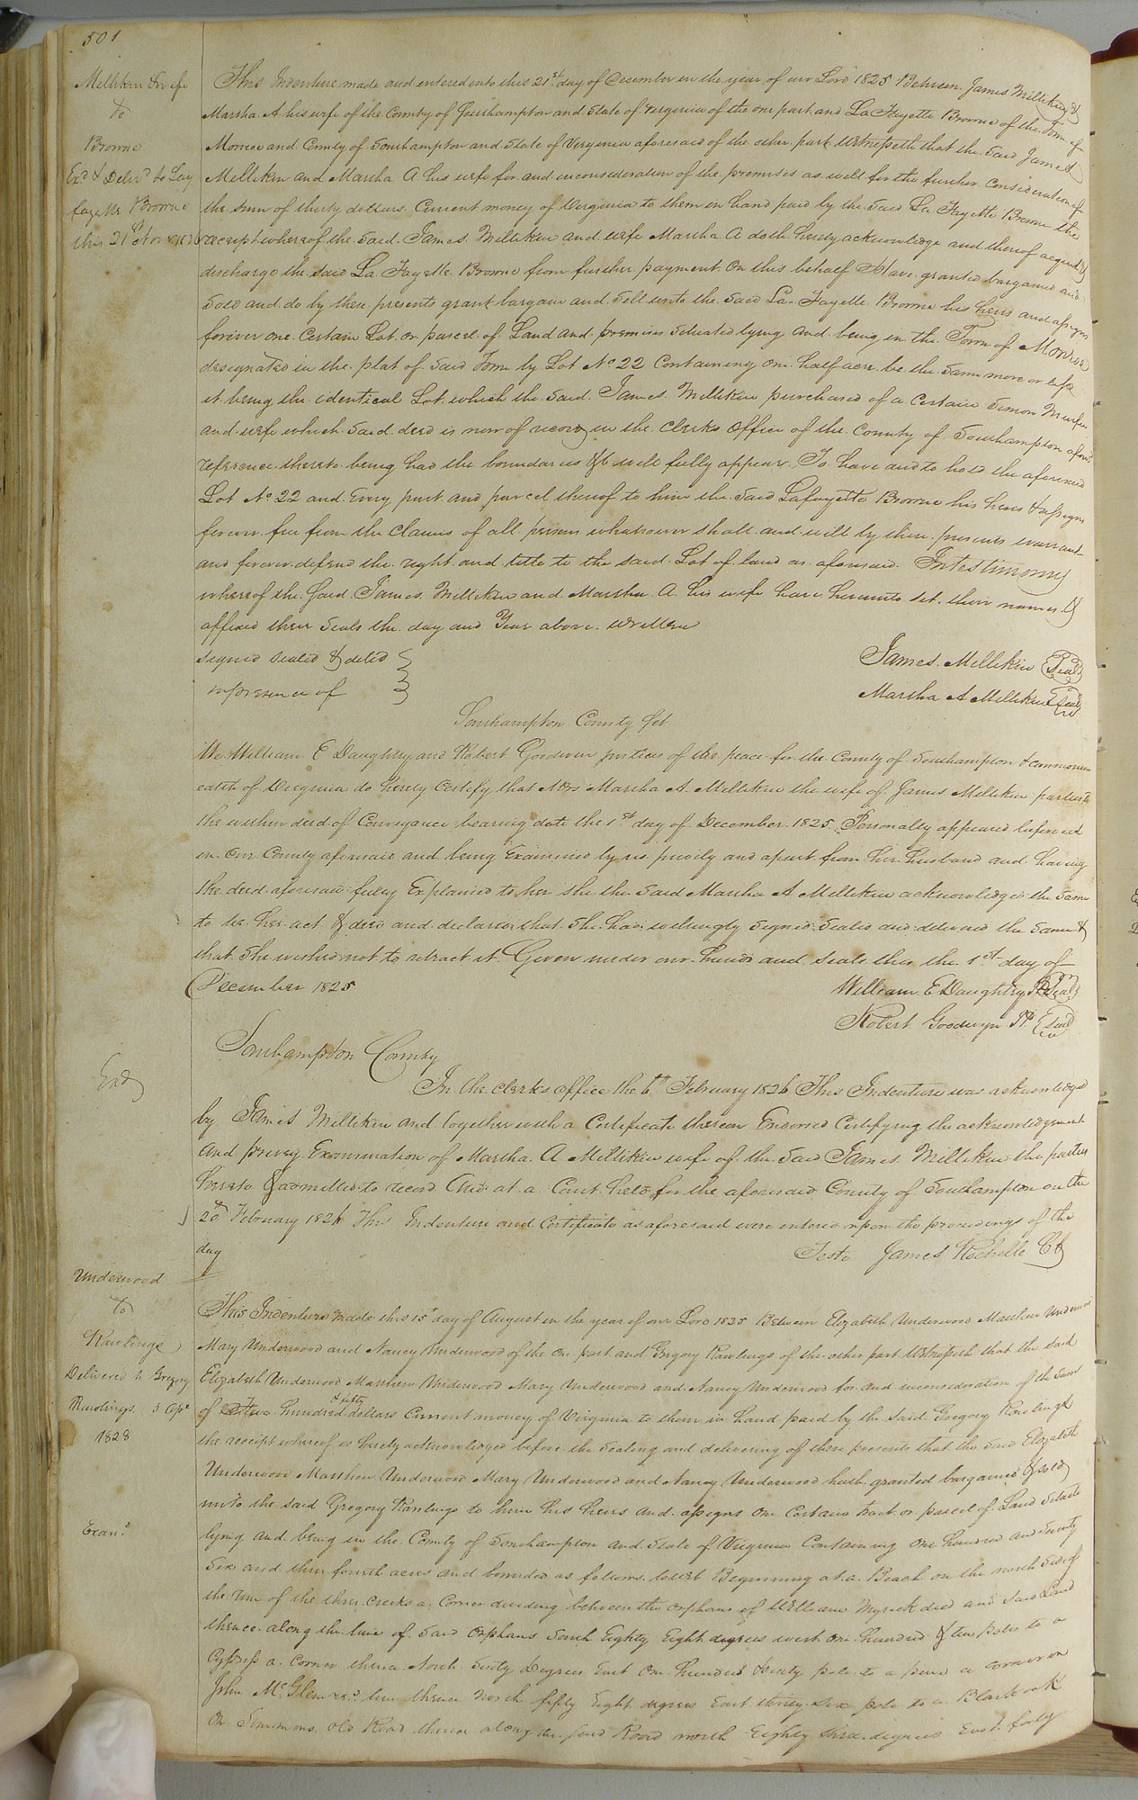 501
Millikin & wife
to
Browne
Exd & Delivd to Lay
fayette Browne
this 21st Nov
This Indenture made and entered into this 21st day of December in the year of our Lord 1825 Between James Millikin &
Marsha A his wife of the County of Southampton and State of Virginia of the one part and La Fayette Browne of the Town of
Monroe and County of Southampton and State of Virginia aforesaid of the other part Witnesseth that the said James
Millikin and Marsha A his wife for and in consideration of the promises as well for the further consideration of
the sum of thirty dollars Current money of Virginia to them in hand paid by the said La Fayette Browne the
receipt whereof the said James Millikin and wife Marsha A doth hereby acknowledge and thereof acquit &
discharge the said La Fayette Browne from further payment On this behalf Have granted bargained and
Sold and do by these presents grant bargain and Sell unto the said La Fayette Browne his heirs and assigns
forever one Certain Lot or parcel of Land and premises Situated lying and being in the Town of Monroe
designated in the plat of said Town by Lot No 22 Containing one half acre be the Same more or less
it being the identical Lot which the said James Millikin purchased of a Certain Simon Murfee
and wife which said deed is now of record in the Clerks Office of the County of Southampton afores
reference thereto being had the boundaries &c will fully appear To have and to hold the aforesaid
Lot No 22 and Every part and parcel thereof to him the said Lafayette Browne his heirs & assigns
forever free from the Claims of all persons whatsoever shall and will by these presents warrant
and forever defend the right and title to the said Lot of land as aforesaid In testimony
whereof the said James Millikin and Marsha A his wife have hereunto set their names &
affixed their Seals the day and Year above written
Signed Sealed & delivd
in presence of
James Millikin Seal
Marsha A Millikin Seal
Southampton County Sct
We William E Daughtry and Robert Goodwin justices of the peace for the County of Southampton & common
wealth of Virginia do hereby Certify that Mrs Marsha A Millikin the wife of James Millikin parties to
the within deed of Conveyance bearing date the 1st day of December 1825 Personally appeared before us
in Our County aforesaid and being Examined by us privily and apart from her husband and having
the deed aforesaid fully Explained to her she the said Marsha A Millikin acknowledged the same
to be her act & deed and declared that She had willingly Signed Sealed and delivered the Same &
that She wished not to retract it Given under our hands and Seals this the 1st day of
December 1825
William E Daughtry JP Seal
Robert Goodwyn JP Seal
Exd
Southampton County
In the Clerks office the 6th February 1826 This Indenture was acknowledged
by James Millikin and together with a Certificate thereon Endorsed Certifying the acknowledgment
and privy Examination of Marsha A Millikin wife of the said James Millikin the parties
hereto & admitted to record And at a Court held for the aforesaid County of Southampton on the
20th February 1826 This Indenture and Certificate as aforesaid were entered upon the proceedings of the
day
Teste James Rochelle Clk
Underwood
to
Rawlings
Delivered to Gregory
Rawlings 3 Apl
1828
Exan.d
This Indenture made this 15th day of August in the year of our Lord 1825 Between Elizabeth Underwood Matthew Underwood
Mary Underwood and Nancy Underwood of the One part and Gregory Rawlings of the other part Witnesseth that the said
Elizabeth Underwood Matthew Underwood Mary Underwood and Nancy Underwood for and in consideration of the Sum
of Two hundred & fifty dollars Current money of Virginia to them in hand paid by the said Gregory Rawlings
the receipt whereof is hereby acknowledged before the Sealing and delivering of these presents that the said Elizabeth
Underwood Matthew Underwood Mary Underwood and Nancy Underwood hath granted bargained & sold
unto the said Gregory Rawlings to him his heirs and assigns One Certain tract or parcel of Land Situate
lying and being in the County of Southampton and State of Virginia Containing one hundred and Seventy
Six and three fourth acres and bounded as follows towit Beginning at a Beach on the north side of
the run of the three creeks a Corner dividing between the orphans of William Myrick decd and said Land
thence along the line of said Orphans South Eighty Eight degrees west One hundred & ten poles to a
Cypress a Corner thence North Sixty Degrees East One hundred Seventy pole to a pine a corner on
John McGlemres line thence North fifty Eight degrees East thirty Six pole to a Black oak
On Simmons Old Road thence along the said Road north Eighty three degrees East forty